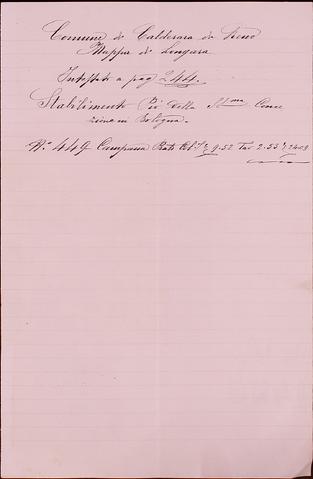 Comune di Calderara di Reno
Mappa di Longara
Intestato a pag 244.
Stabilimento Pio della SSma Conce
zione in Bologna.
N.° 449 Campana Prati 9.52 Tav 2.55